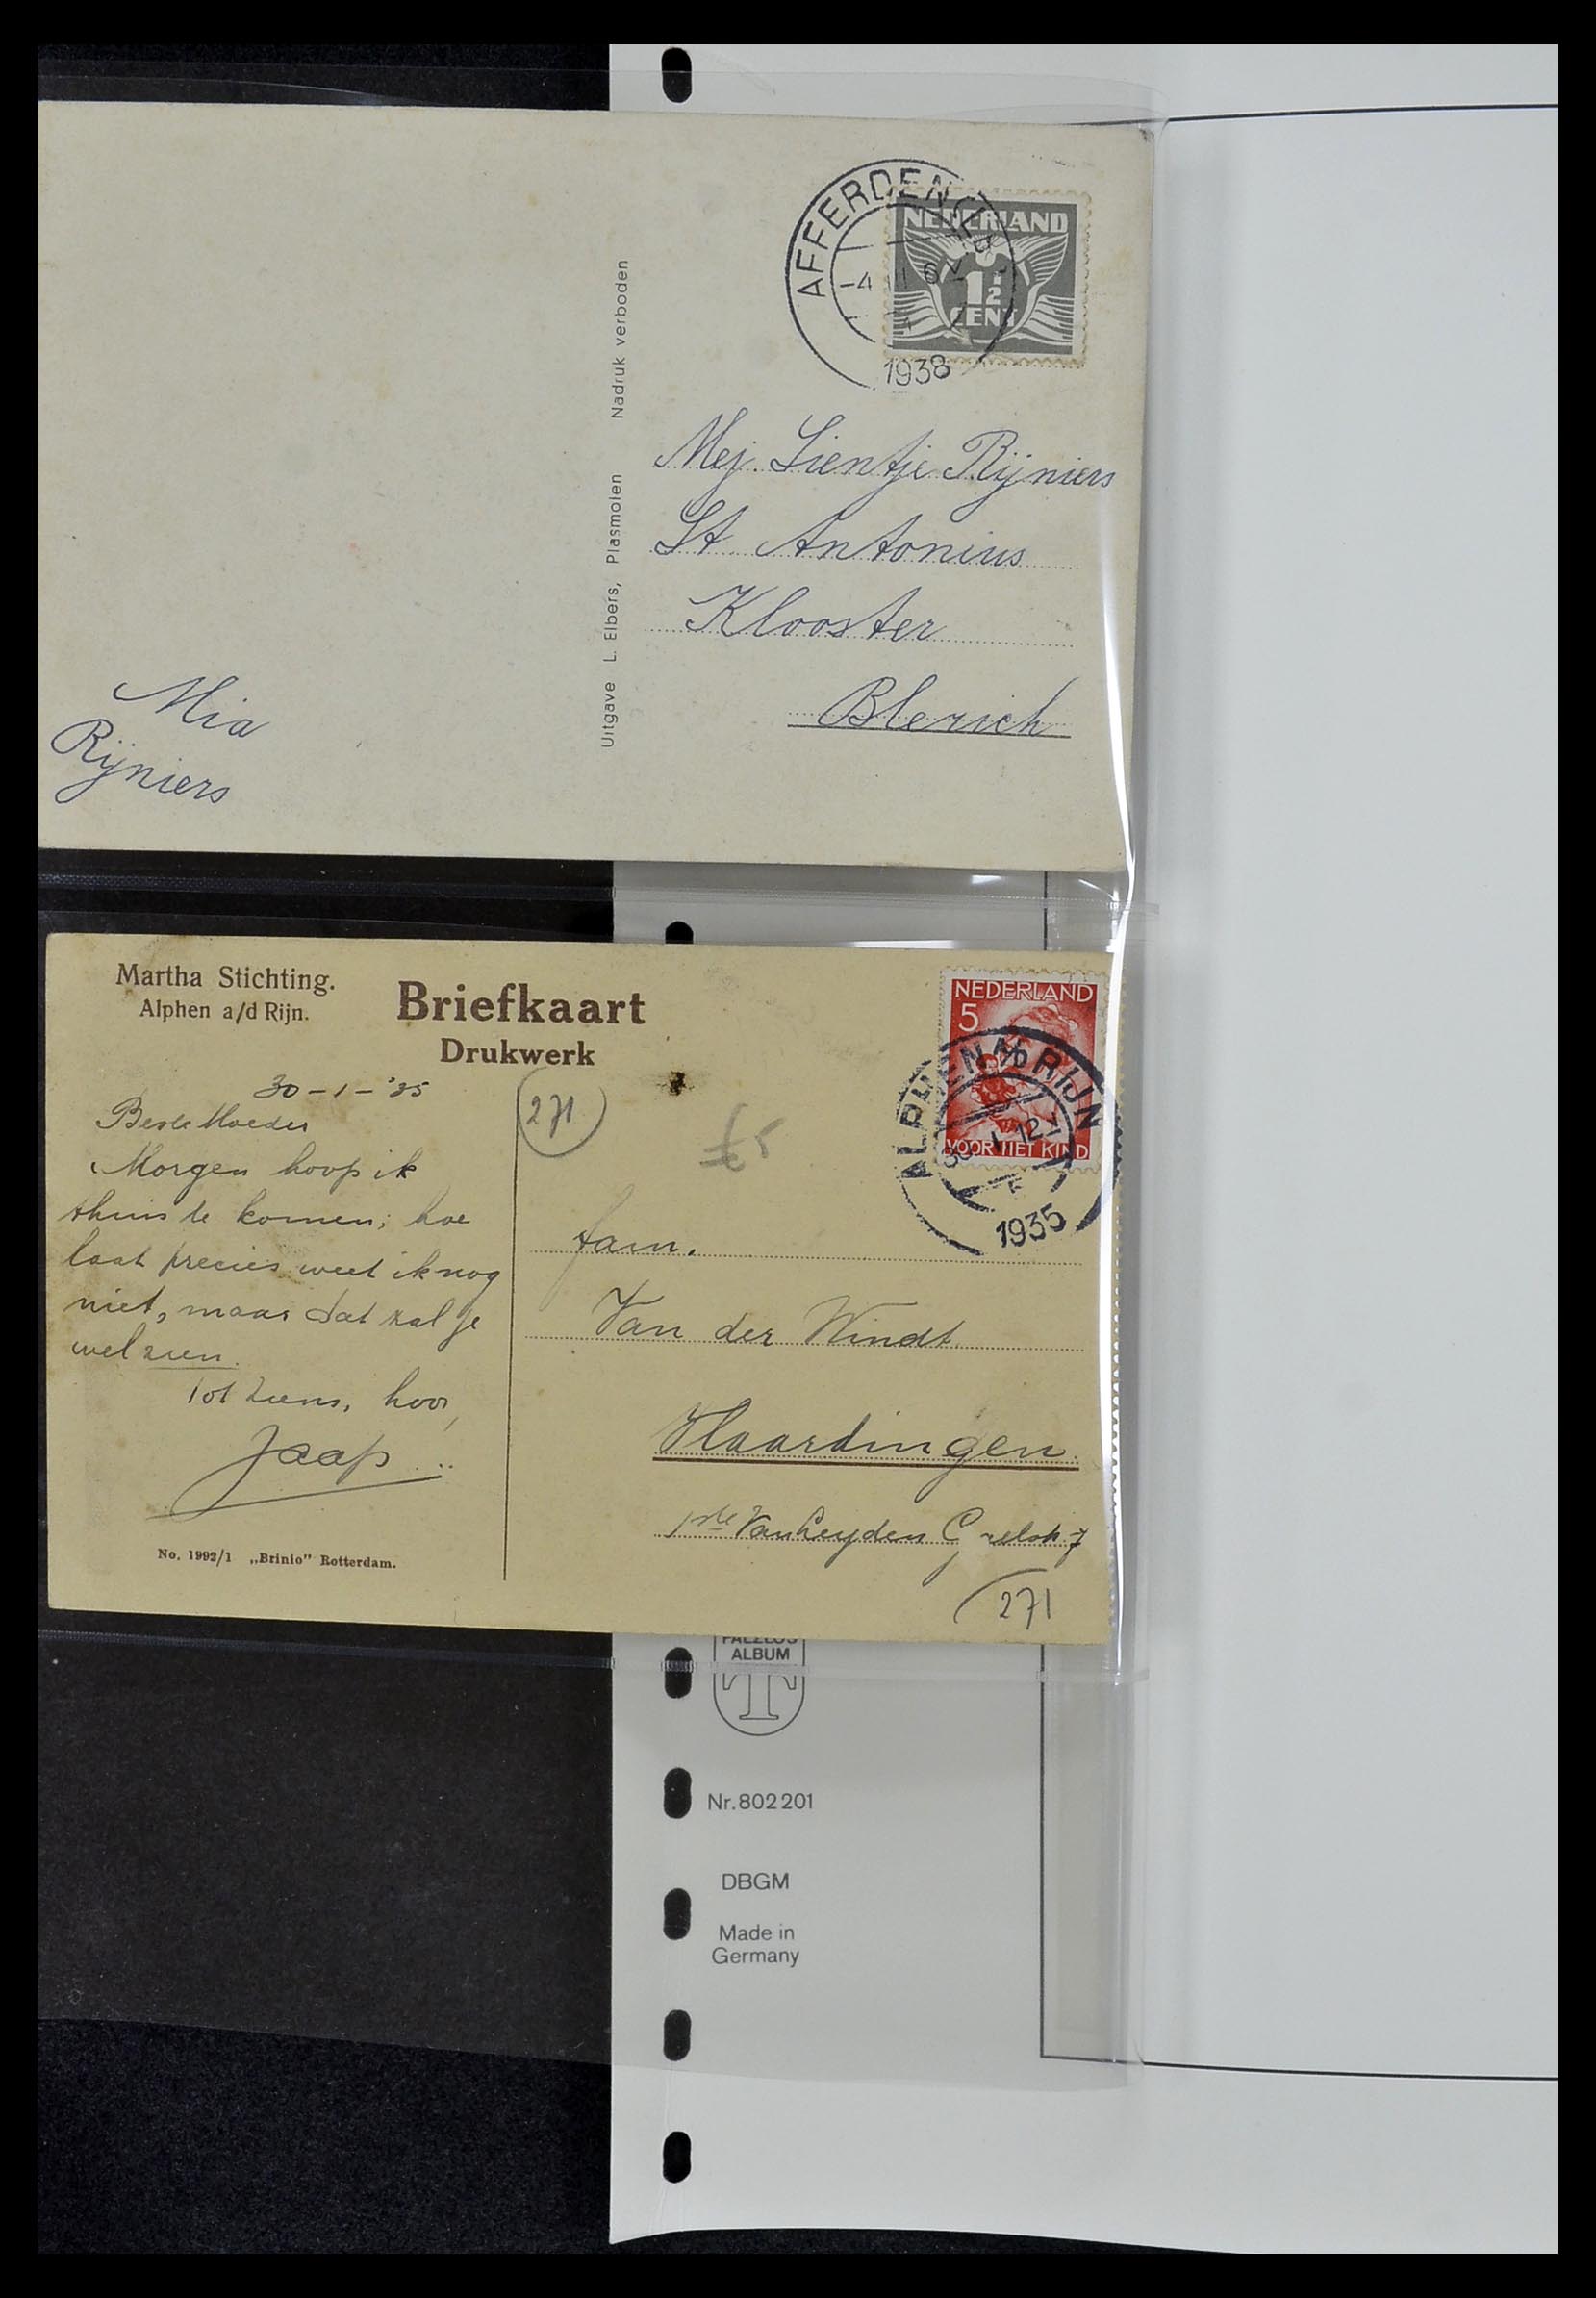 AFFERDEN
-4
1938
NEDERLAND
1½
CENT
Uitgave L. Elbers, Plasmolen Nadruk verboden
Mej. Lientje Rijniers
St Antonius
Klooster
Blerich
Mia
Rijniers
Martha Stichting.
Alphen a/d Rijn.
Briefkaart
Drukwerk
30-1-'35
Beste Moeder
Morgen hoop ik
thuis te komen; hoe
laat precies weet ik nog
niet, maar dat zal je
wel zien.
Tot ziens, hoor,
Jaap
No. 1992/1 „Brinio” Rotterdam.
271
£5
NEDERLAND
5
VOOR HET KIND
ALPHEN A/D RIJN
1935
fam.
Van der Windt
Vlaardingen.
1ste Van Leyden
271
FALZLOS
ALBUM
T
Nr. 802 201
DBGM
Made in
Germany